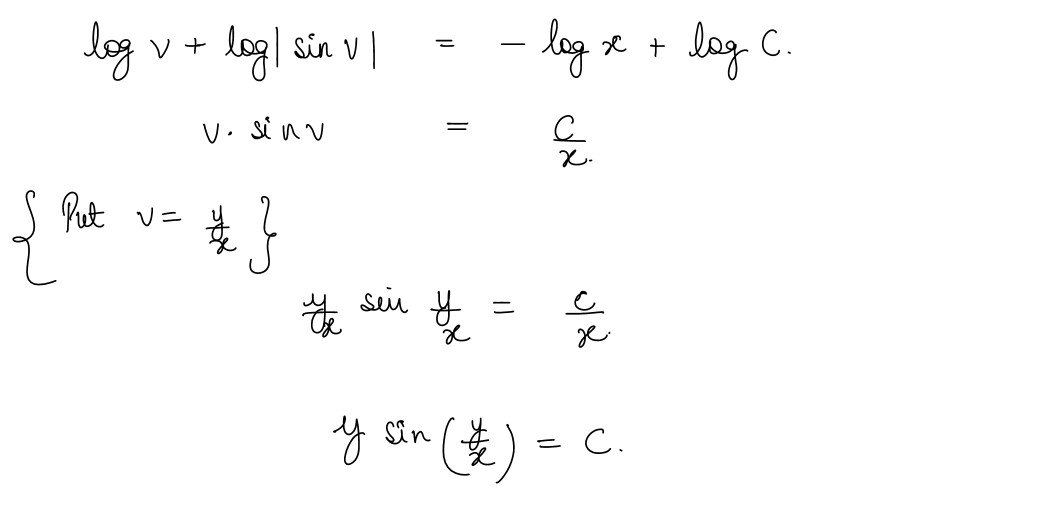 log v + log| sin v| = - log x + log C.
v. sin v = C/x.
{ Put v = y/x }
y/x sin y/x = c/x.
y sin(y/x) = C.